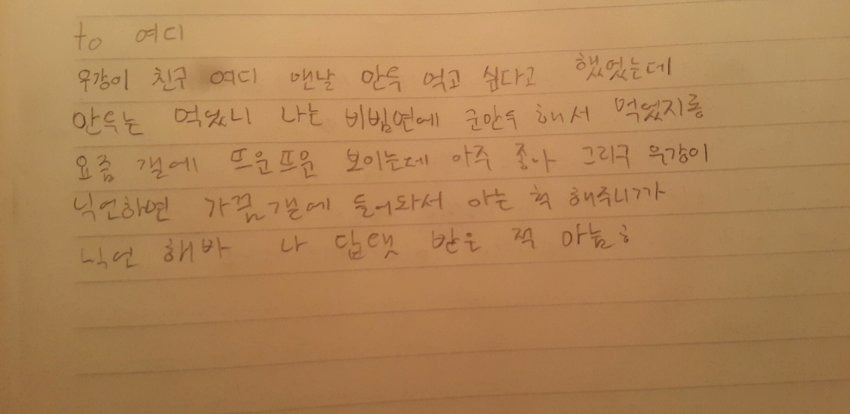 to 여디
우강이 친구 여디 맨날 만두 먹고 싶다고 했었는데
만두는 먹었니 나는 비빔면에 군만두 해서 먹었지롱
요즘 갤에 뜨문뜨문 보이는데 아주 좋아 그리구 우강이
닉언하면 가끔 갤에 들어와서 아는 척 해주니까
닉언 해바 나 답댓 받은 적 아님ㅎ